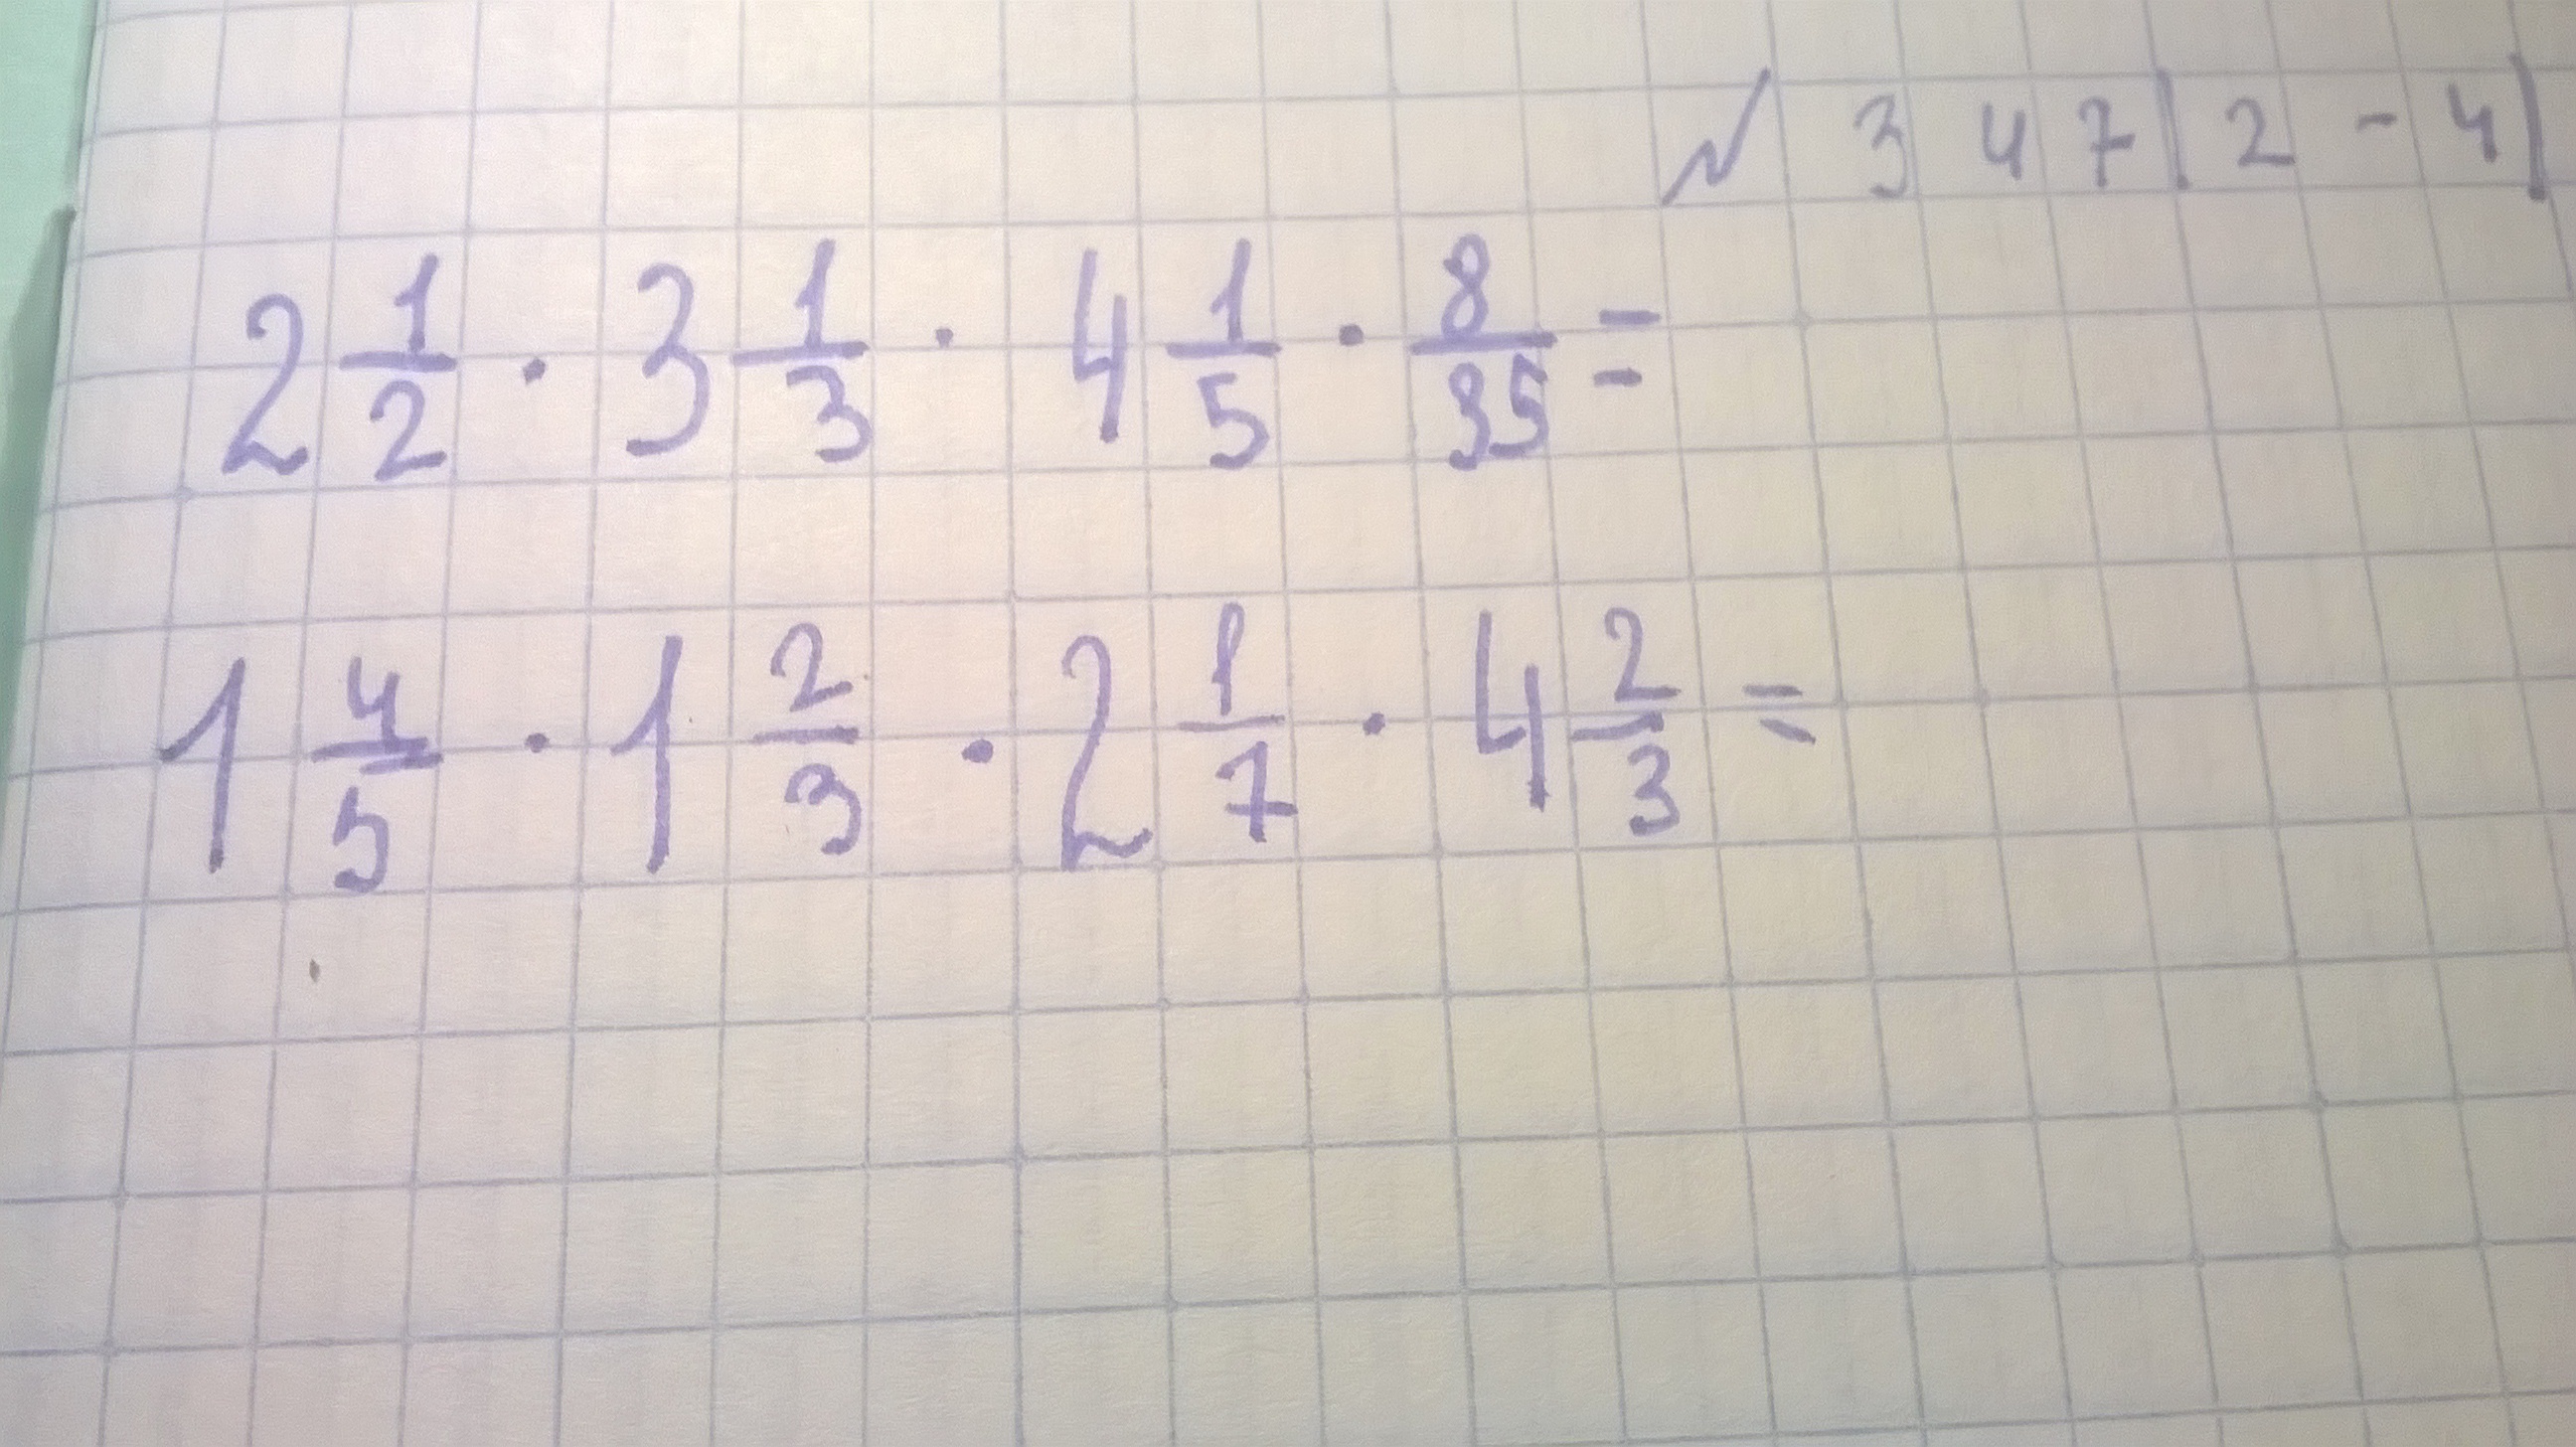 № 347(2-4)
2 1/2 · 3 1/3 · 4 1/5 · 8/35 =
1 4/5 · 1 2/3 · 2 1/7 · 4 2/3 =